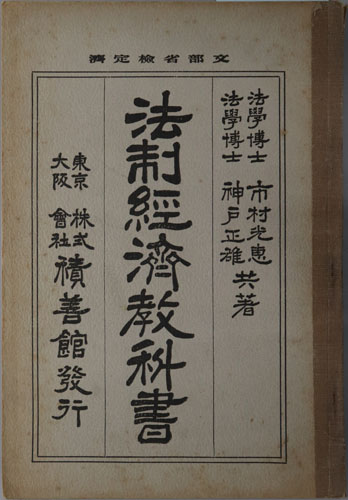 文部省檢定濟
法學博士 市村光惠
法學博士 神戸正雄
共著
法制經濟敎科書
東京
大阪
株式
會社
積善館發行